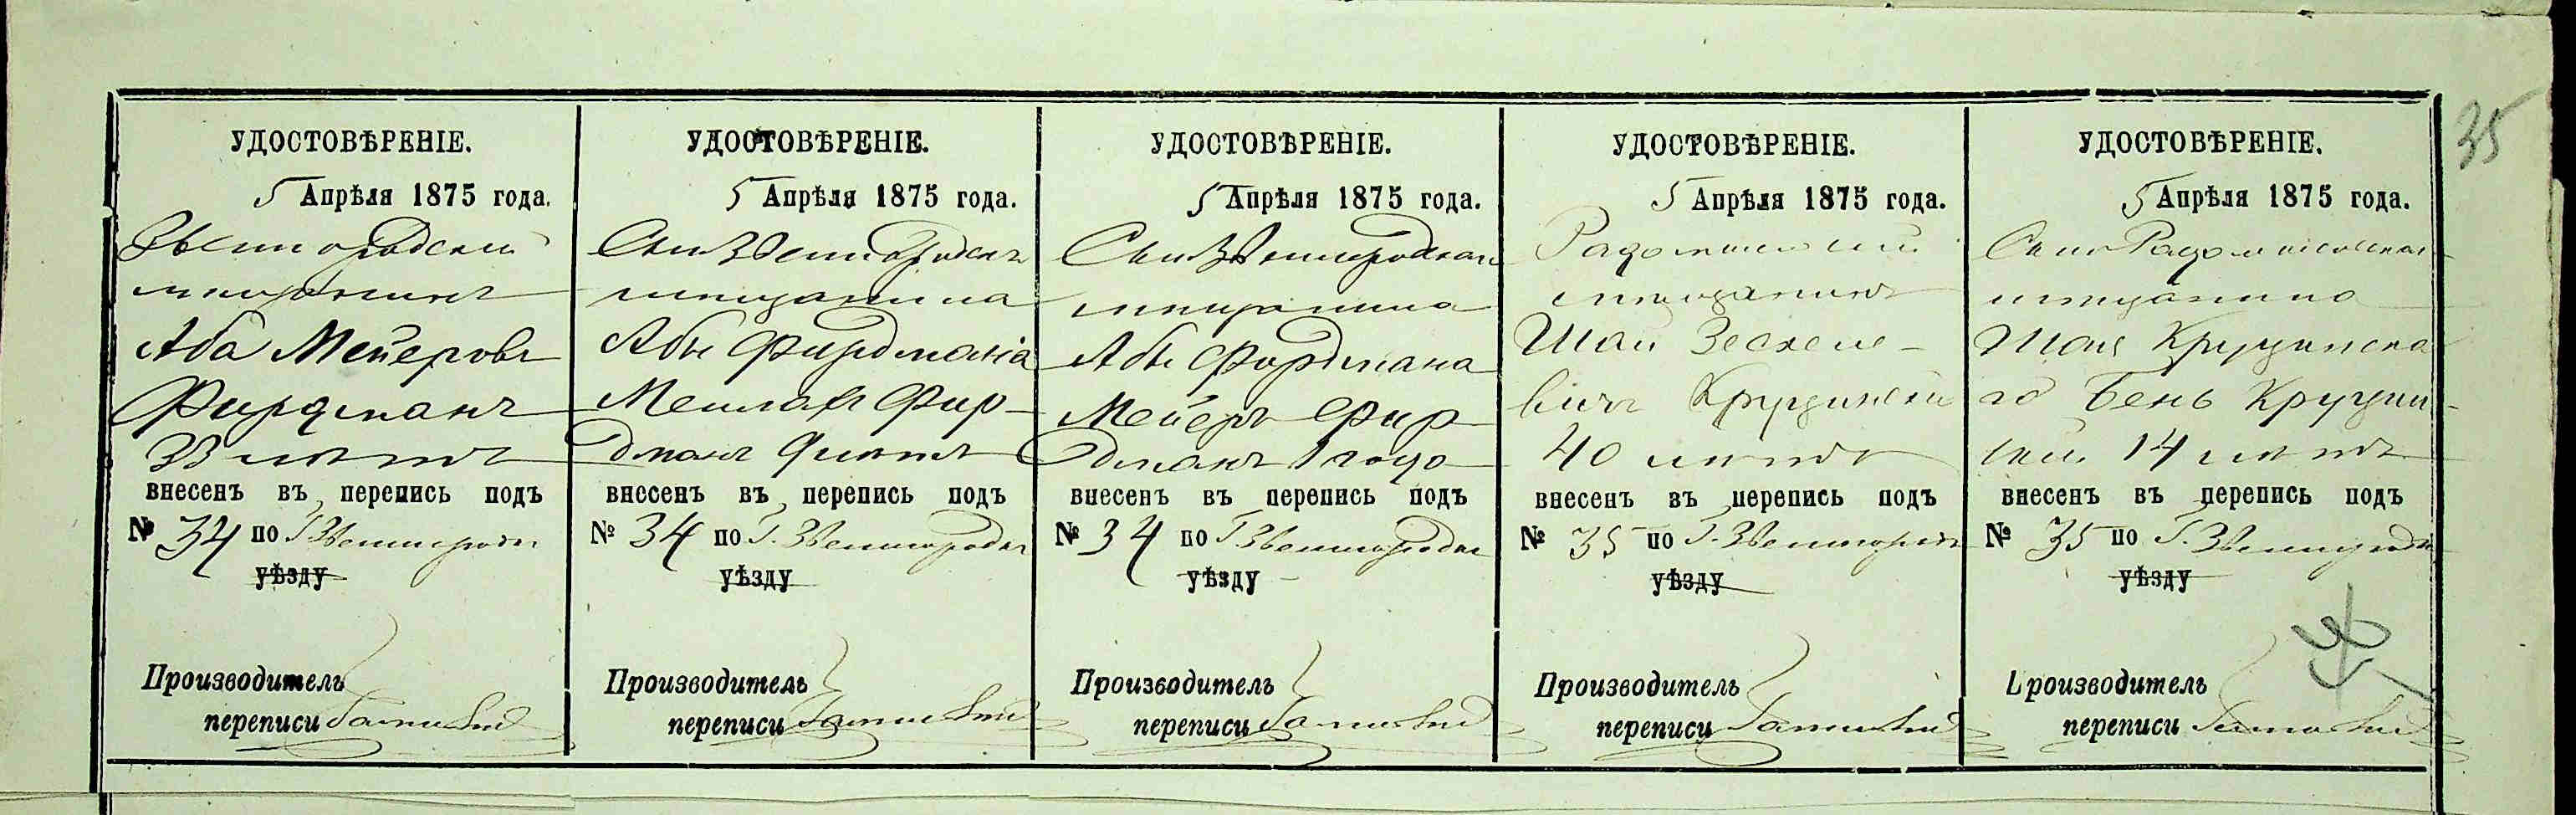 35
УДОСТОВѢРЕНІЕ.
5 Апрѣля 1875 года.
Звенигородскій
мещанинъ
Аба Мейеровъ
Фирдманъ
33 летъ
внесенъ въ перепись подъ
№ 34 по Г. Звенигородк
уѣзду
Производитель
переписи
УДОСТОВѢРЕНІЕ.
5 Апрѣля 1875 года.
Сын Звенигородск
мещанина
Абы Фирдмана
Фир-
дманъ 9 летъ
внесенъ въ перепись подъ
№ 34 по Г. Звенигородк
уѣзду
Производитель
переписи
УДОСТОВѢРЕНІЕ.
5 Апрѣля 1875 года.
Сын Звенигородскаго
мещанина
Абы Фирдмана
Мейеръ Фир-
дманъ 1 года
внесенъ въ перепись подъ
№ 34 по Г. Звенигородк
уѣзду
Производитель
переписи
УДОСТОВѢРЕНІЕ.
5 Апрѣля 1875 года.
Радомысльскій
мещанинъ
Шай
Кругинскій
40 летъ
внесенъ въ перепись подъ
№ 35 по Г. Звенигородк
уѣзду
Производитель
переписи
УДОСТОВѢРЕНІЕ.
5 Апрѣля 1875 года.
Сынъ Радомысльскаго
мещанина
Шая Кругинска
го Бень Кругин-
скій 14 летъ
внесенъ въ перепись подъ
№ 35 по Г. Звенигородк
уѣзду
Производитель
переписи